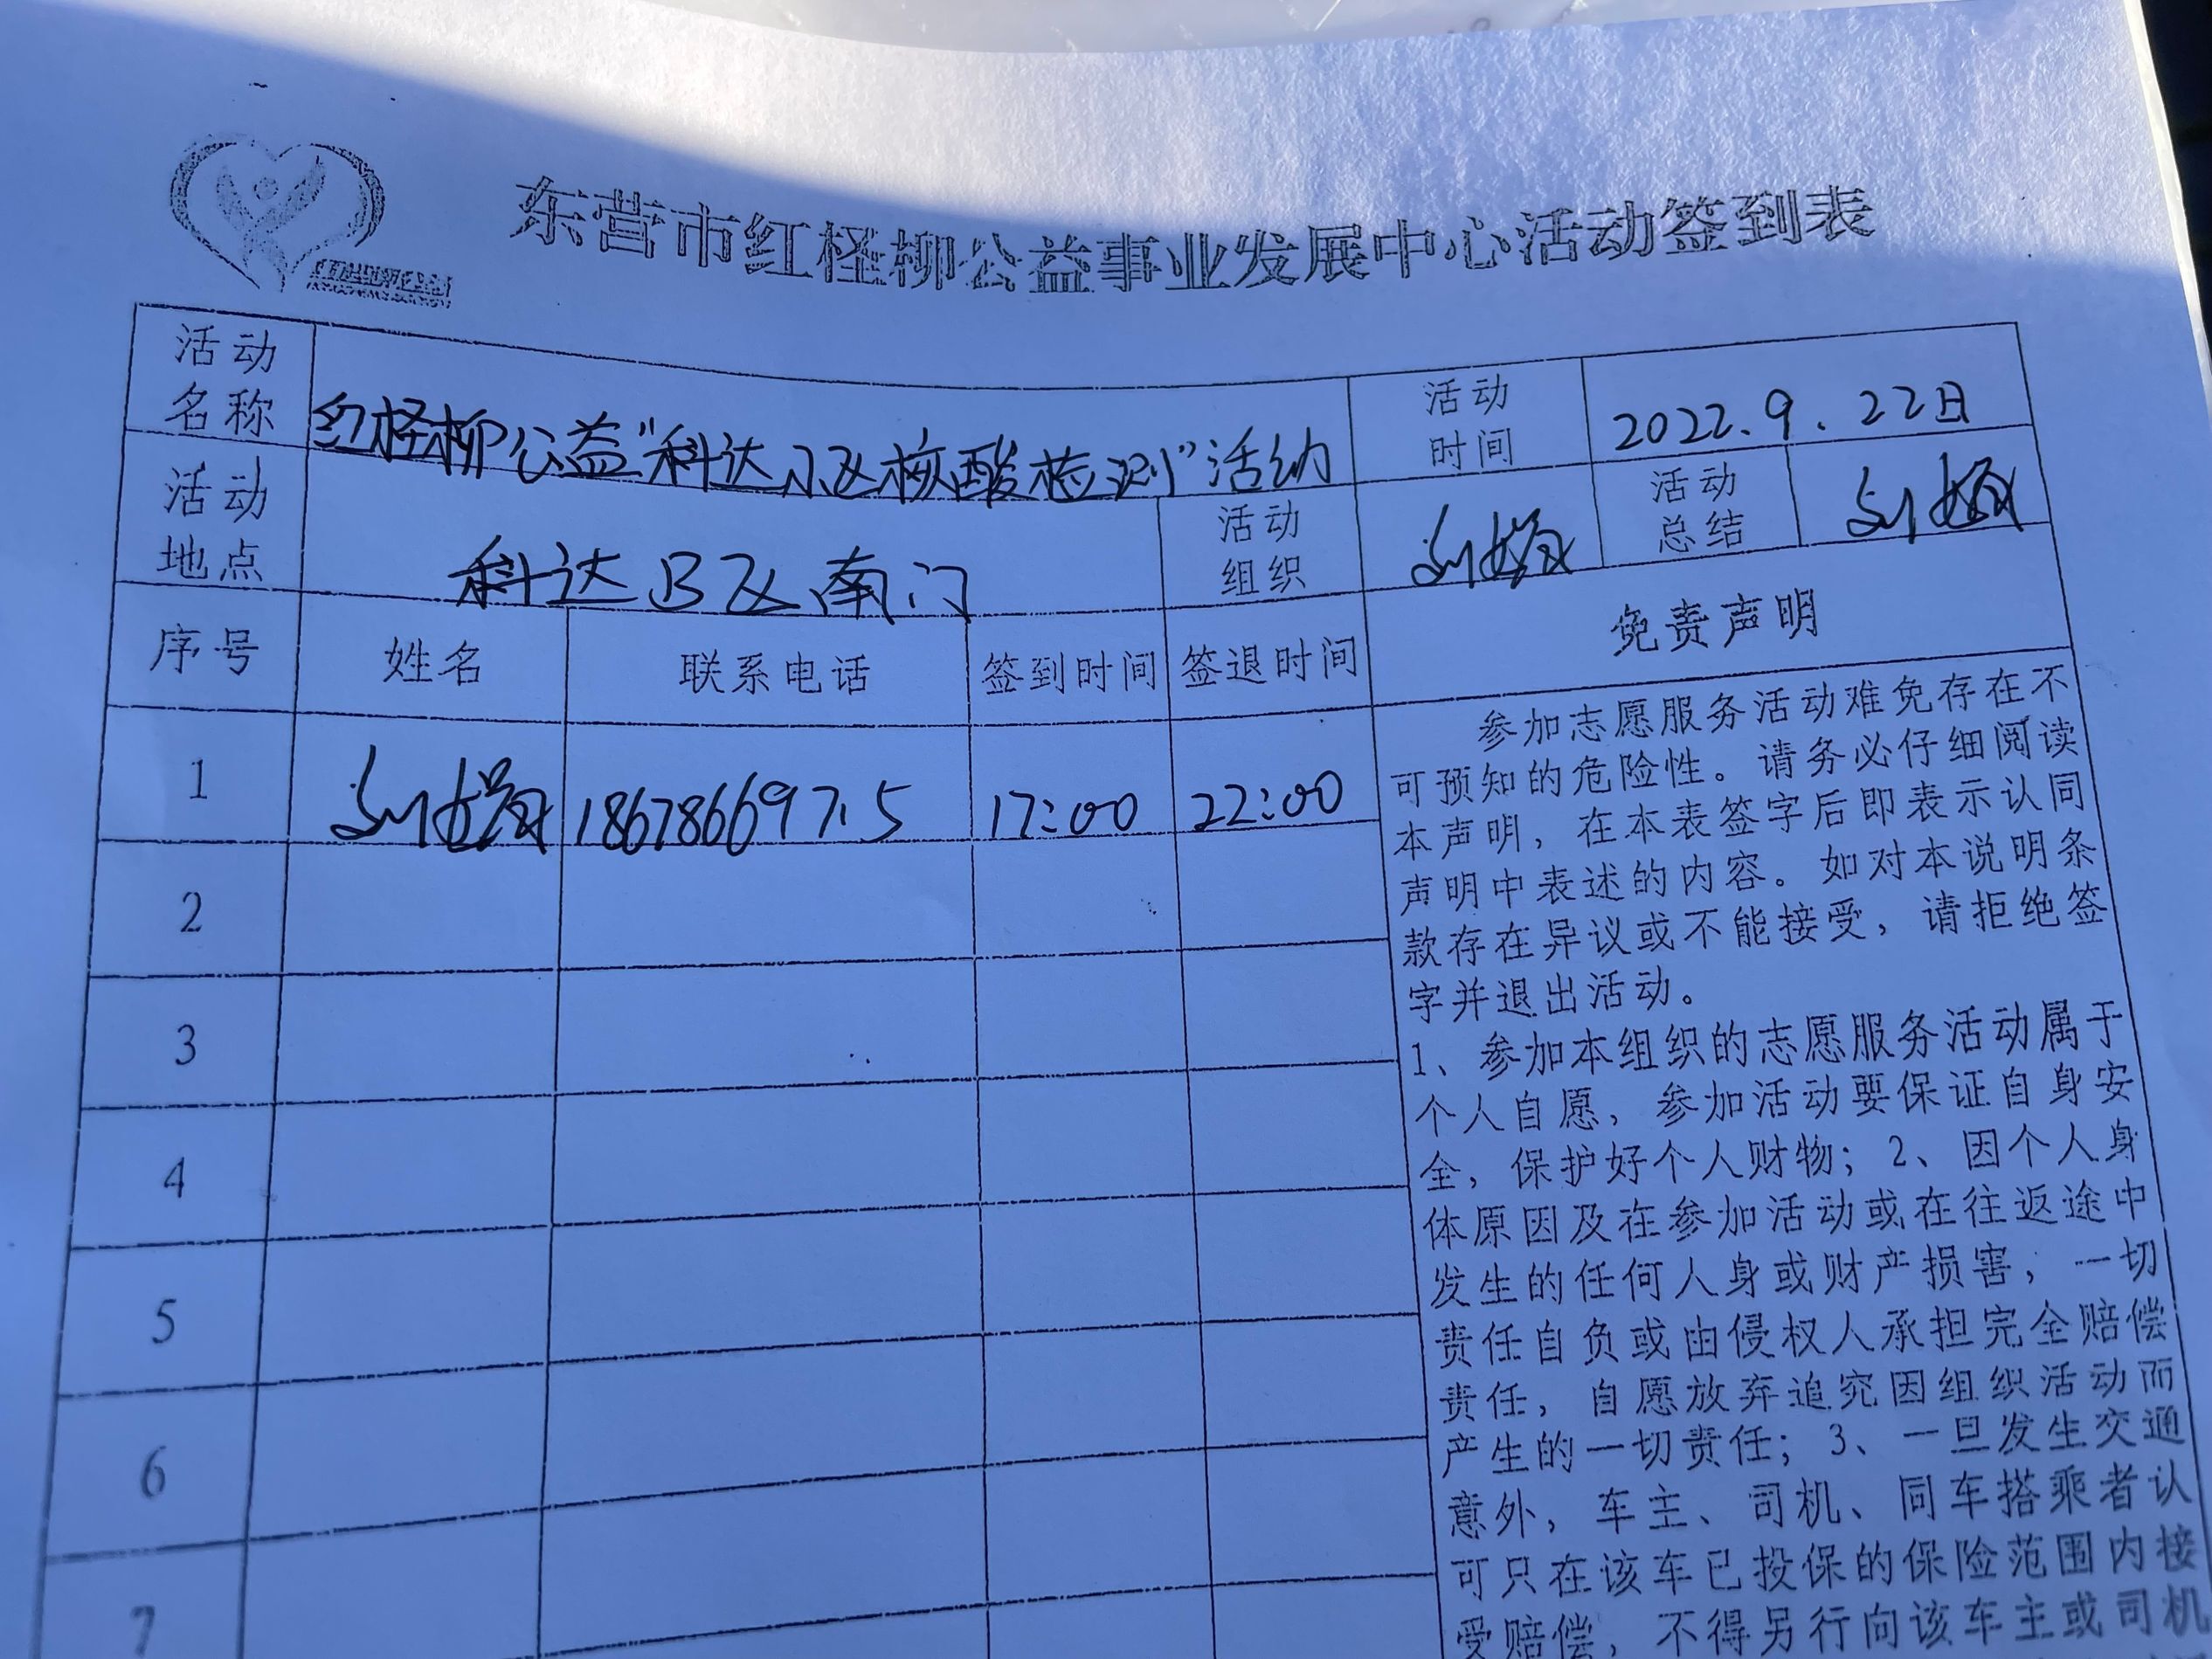 东营市红柽柳公益事业发展中心活动签到表
活动名称 红柽柳公益“科达小区核酸检测”活动 活动时间 2022.9.22日
活动地点 科达B区南门 活动组织 刘 活动总结 刘
序号 姓名 联系电话 签到时间 签退时间 免责声明
1 刘 17:00 22:00
2
3
4
5
6
7
参加志愿服务活动难免存在不
可预知的危险性。请务必仔细阅读
本声明，在本表签字后即表示认同
声明中表述的内容。如对本说明条
款存在异议或不能接受，请拒绝签
字并退出活动。
1、参加本组织的志愿服务活动属于
个人自愿，参加活动要保证自身安
全，保护好个人财物；2、因个人身
体原因及在参加活动或在往返途中
发生的任何人身或财产损害，一切
责任自负或由侵权人承担完全赔偿
责任，自愿放弃追究因组织活动而
产生的一切责任；3、一旦发生交通
意外，车主、司机、同车搭乘者认
可只在该车已投保的保险范围内接
受赔偿，不得另行向该车主或司机